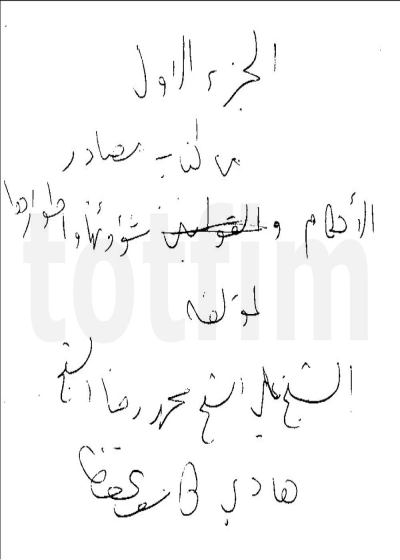 الجزء الاول
من كتاب مصادر
الأحكام و القوانين شؤونها وأطوارها
لمؤلفه
الشيخ علي الشيخ محمد رضا الشيخ
هادي كاشف الغطاء
totfim